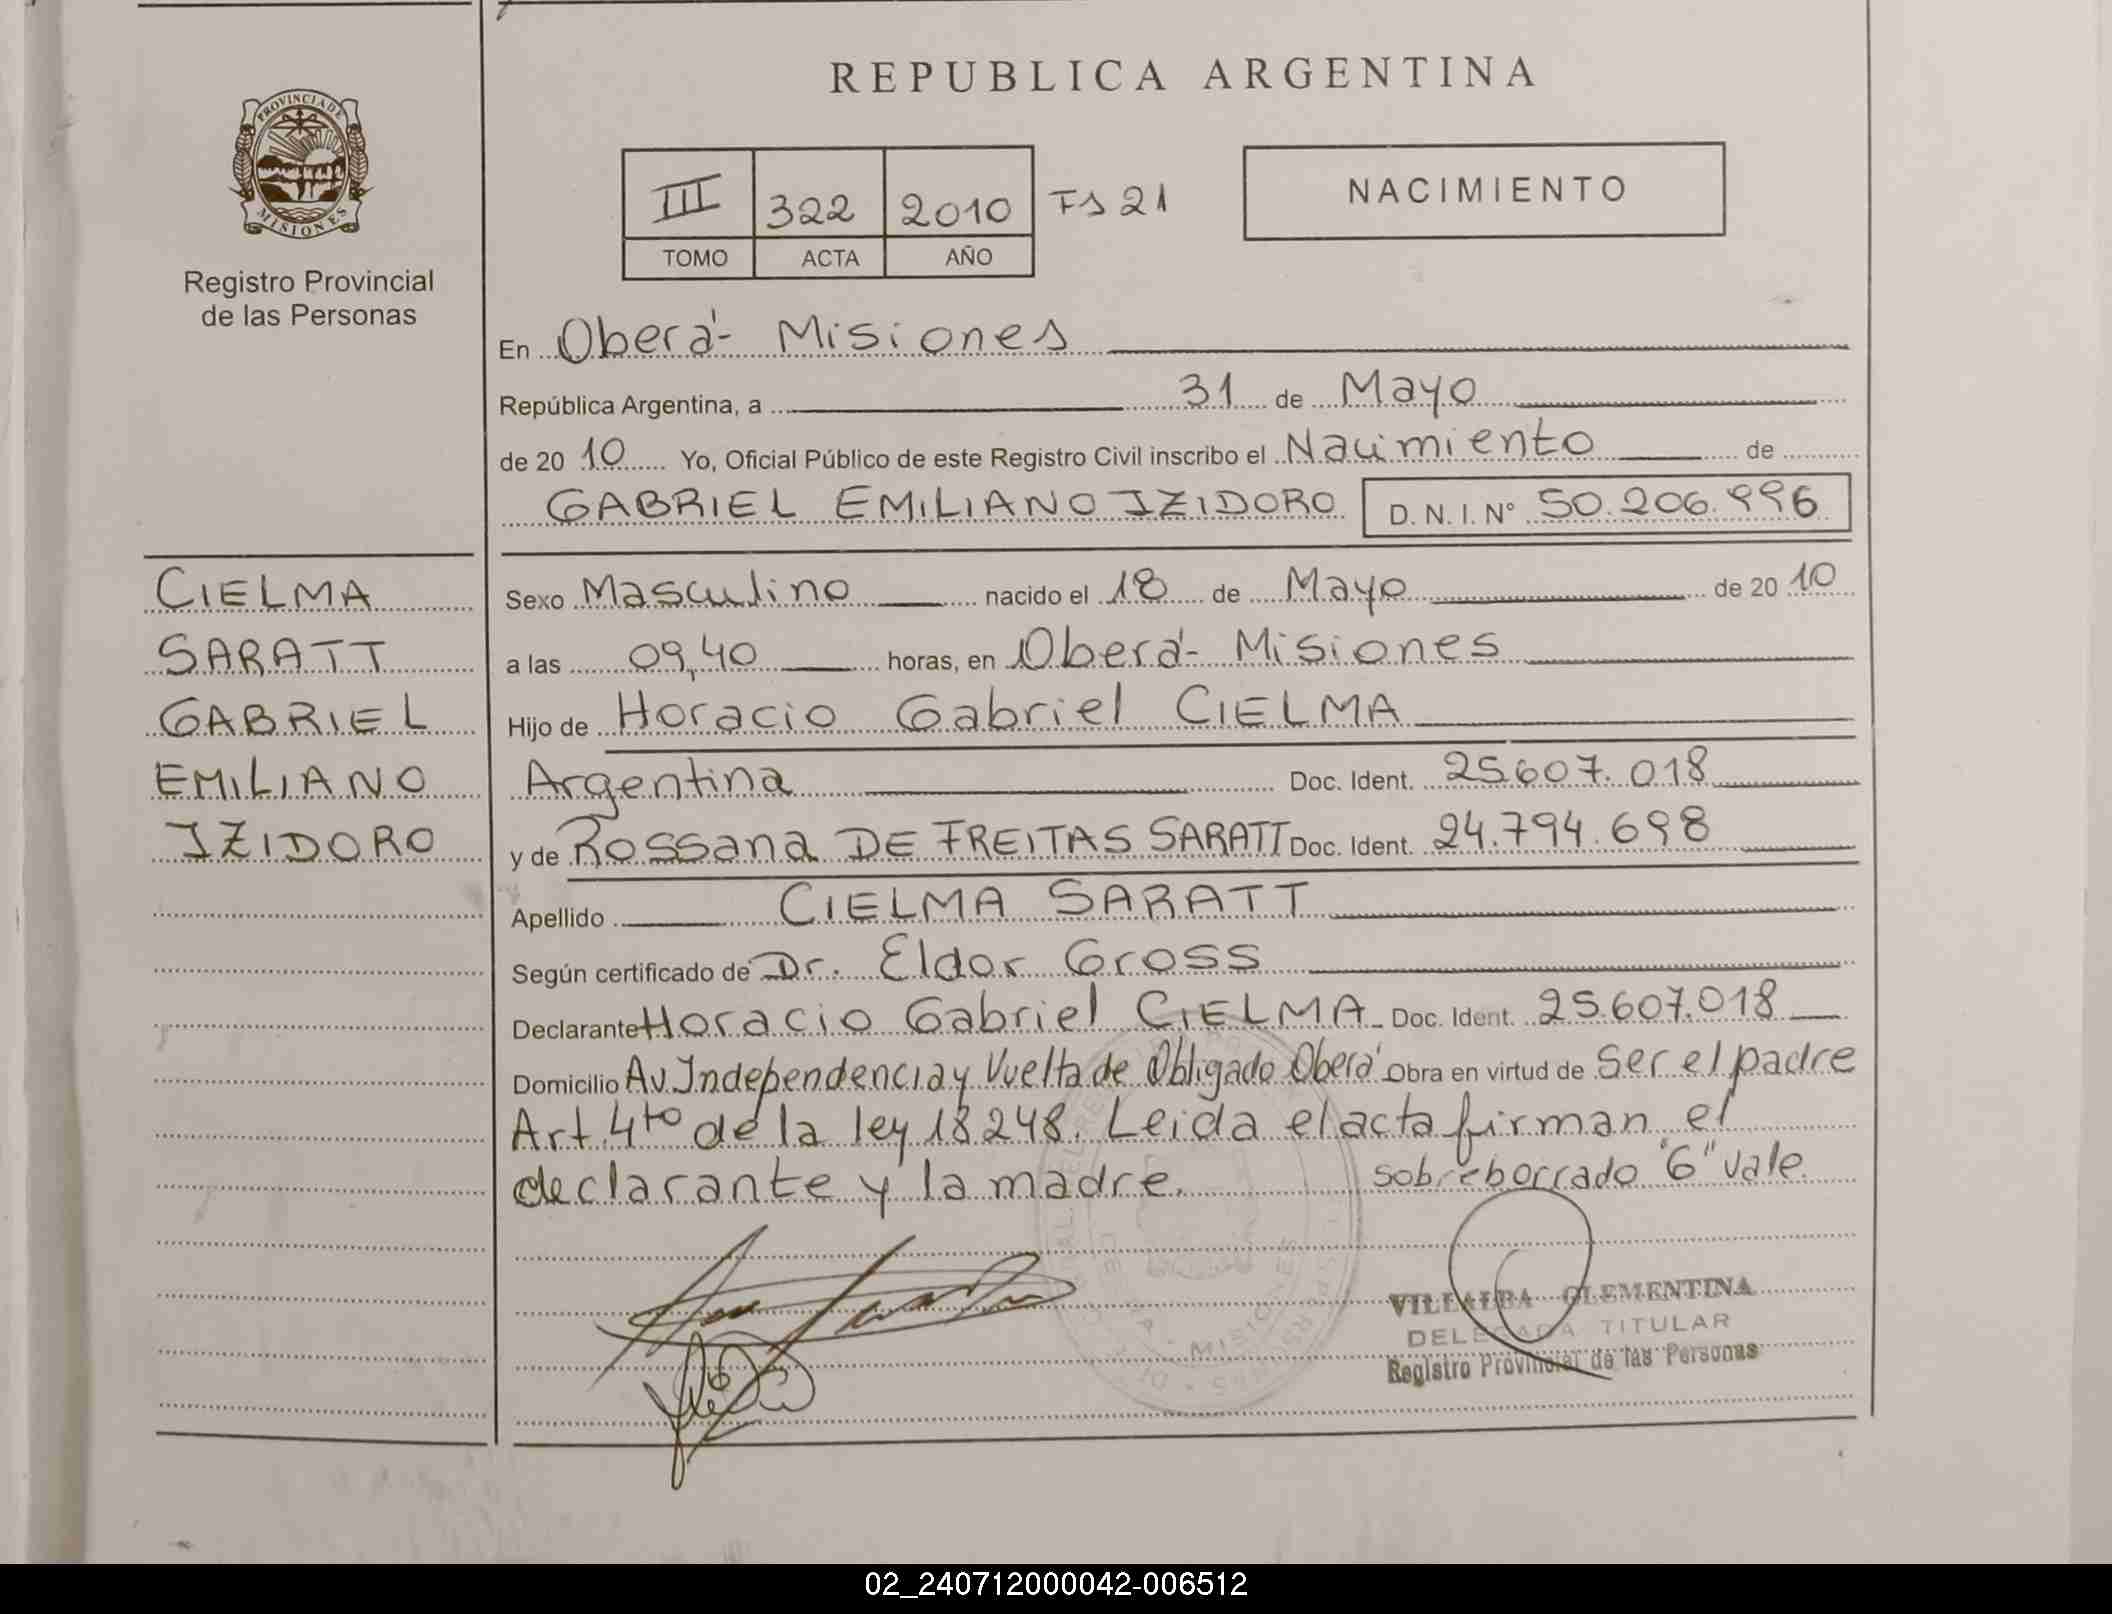 REPUBLICA ARGENTINA
PROVINCIA DE
MISIONES
Registro Provincial
de las Personas
III 322 2010 Fs 21
TOMO ACTA AÑO
NACIMIENTO
En Oberá - Misiones
República Argentina, a 31 de Mayo
de 20 10 Yo, Oficial Público de este Registro Civil inscribo el Nacimiento de
GABRIEL EMILIANO IZIDORO D. N. I. Nº 50.206.996
CIELMA
SARATT
GABRIEL
EMILIANO
IZIDORO
Sexo Masculino nacido el 18 de Mayo de 20 10
a las 09,40 horas, en Oberá - Misiones
Hijo de Horacio Gabriel CIELMA
Argentina Doc. Ident. 25.607.018
y de Rossana DE FREITAS SARATT Doc. Ident. 24.794.698
Apellido CIELMA SARATT
Según certificado de Dr. Eldor Gross
Declarante Horacio Gabriel CIELMA Doc. Ident. 25.607.018
Domicilio Av. Independencia y Vuelta de Obligado Oberá Obra en virtud de Ser el padre
Art. 4to de la ley 18248. Leida el acta firman el
declarante y la madre. sobreborrado "6" vale
VILLALBA CLEMENTINA
DELEGADA TITULAR
Registro Provincial de las Personas
MISIONES
02_240712000042-006512